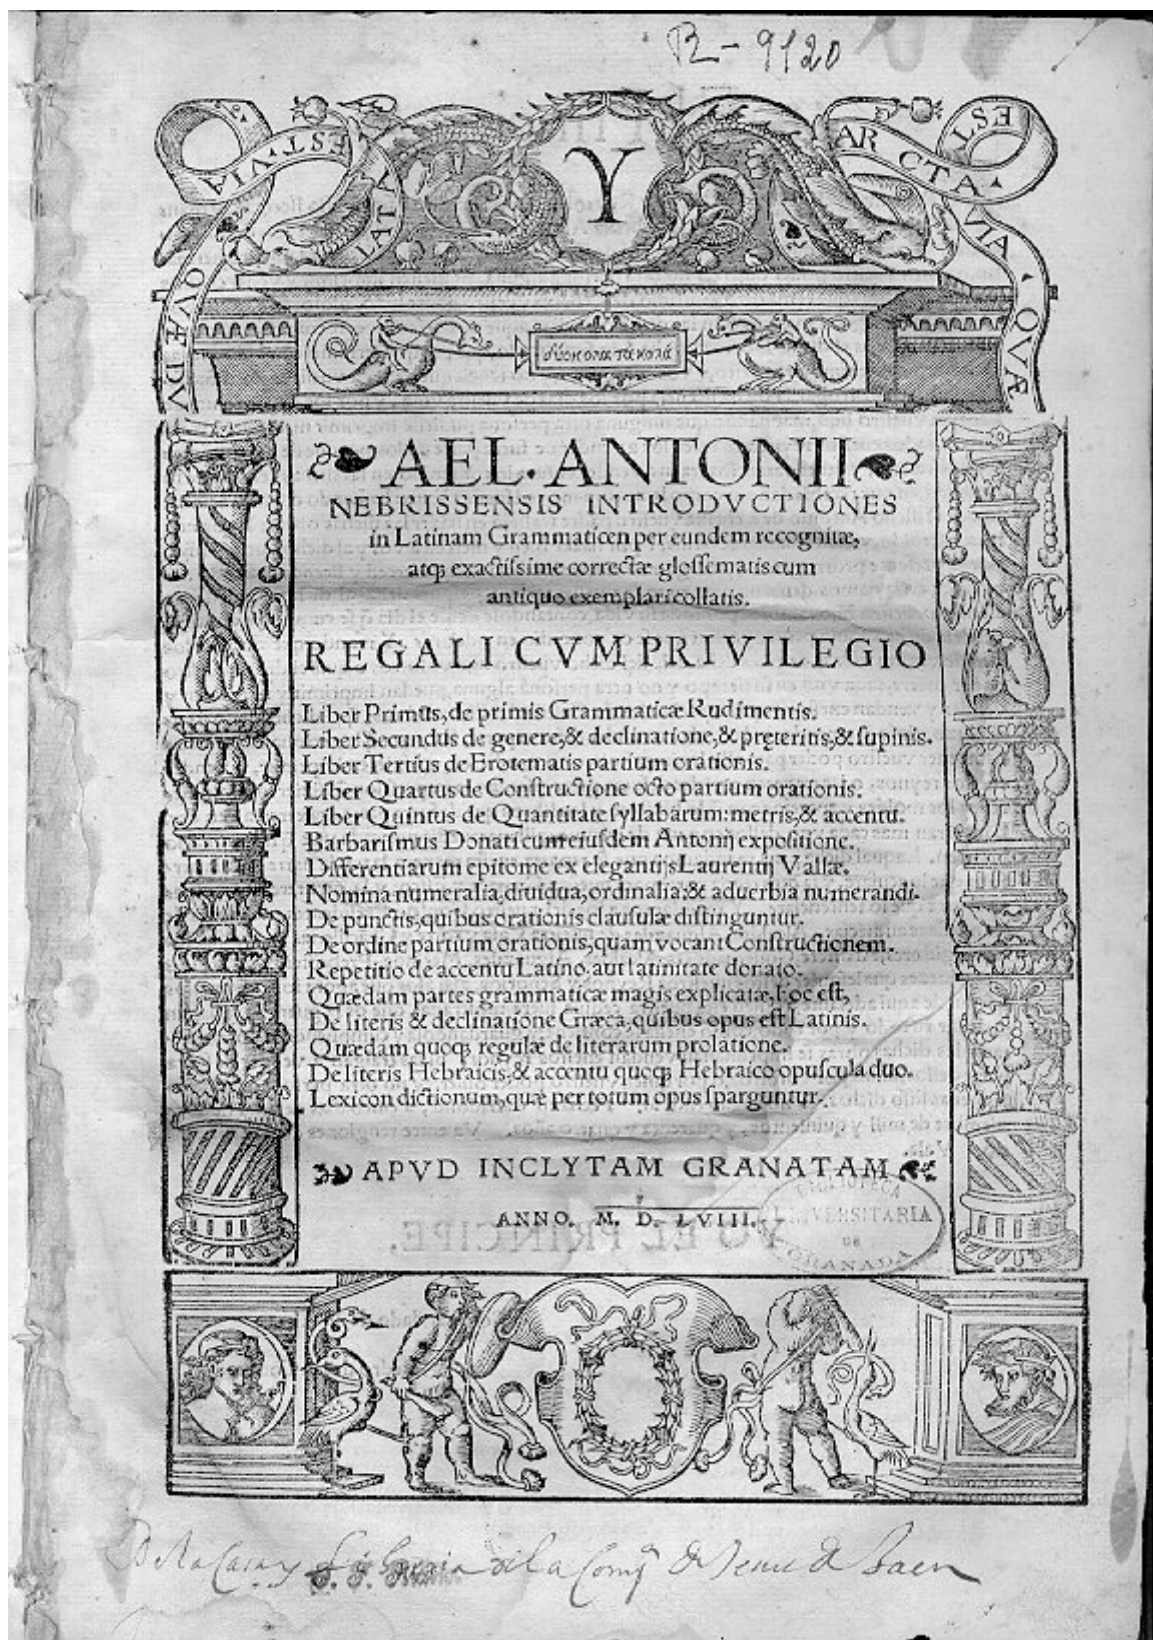 R-9120
LATA EST VIA QVÆ DV
ARCTA EST VIA QVÆ
δύσκολα τὰ καλά
AEL. ANTONII
NEBRISSENSIS INTRODVCTIONES
in Latinam Grammaticen per eundem recognitæ,
atq; exactissime correctæ glossematis cum
antiquo exemplari collatis.
REGALI CVM PRIVILEGIO
Liber Primus, de primis Grammaticæ Rudimentis.
Liber Secundus de genere, & declinatione, & pręteritis, & supinis.
Liber Tertius de Erotematis partium orationis.
Liber Quartus de Constructione octo partium orationis.
Liber Quintus de Quantitate syllabarum: metris, & accentu.
Barbarismus Donati cum eiusdem Antonij expositione.
Differentiarum epitome ex elegantijs Laurentij Vallæ.
Nomina numeralia, diuidua, ordinalia, & aduerbia numerandi.
De punctis, quibus orationis clausulæ distinguntur.
De ordine partium orationis, quam vocant Constructionem.
Repetitio de accentu Latino. aut latinitate donato.
Quædam partes grammaticæ magis explicatæ, hoc est,
De literis & declinatione Græca, quibus opus est Latinis.
Quædam quoq; regulæ de literarum prolatione.
De literis Hebraicis, & accentu quoq; Hebraico opuscula duo.
Lexicon dictionum, quæ per totum opus sparguntur.
APVD INCLYTAM GRANATAM
ANNO. M. D. LVIII.
BIBLIOTECA
UNIVERSITARIA
DE
GRANADA
De la Casa y Libreria de la Comp̃ de Jesus de Baen